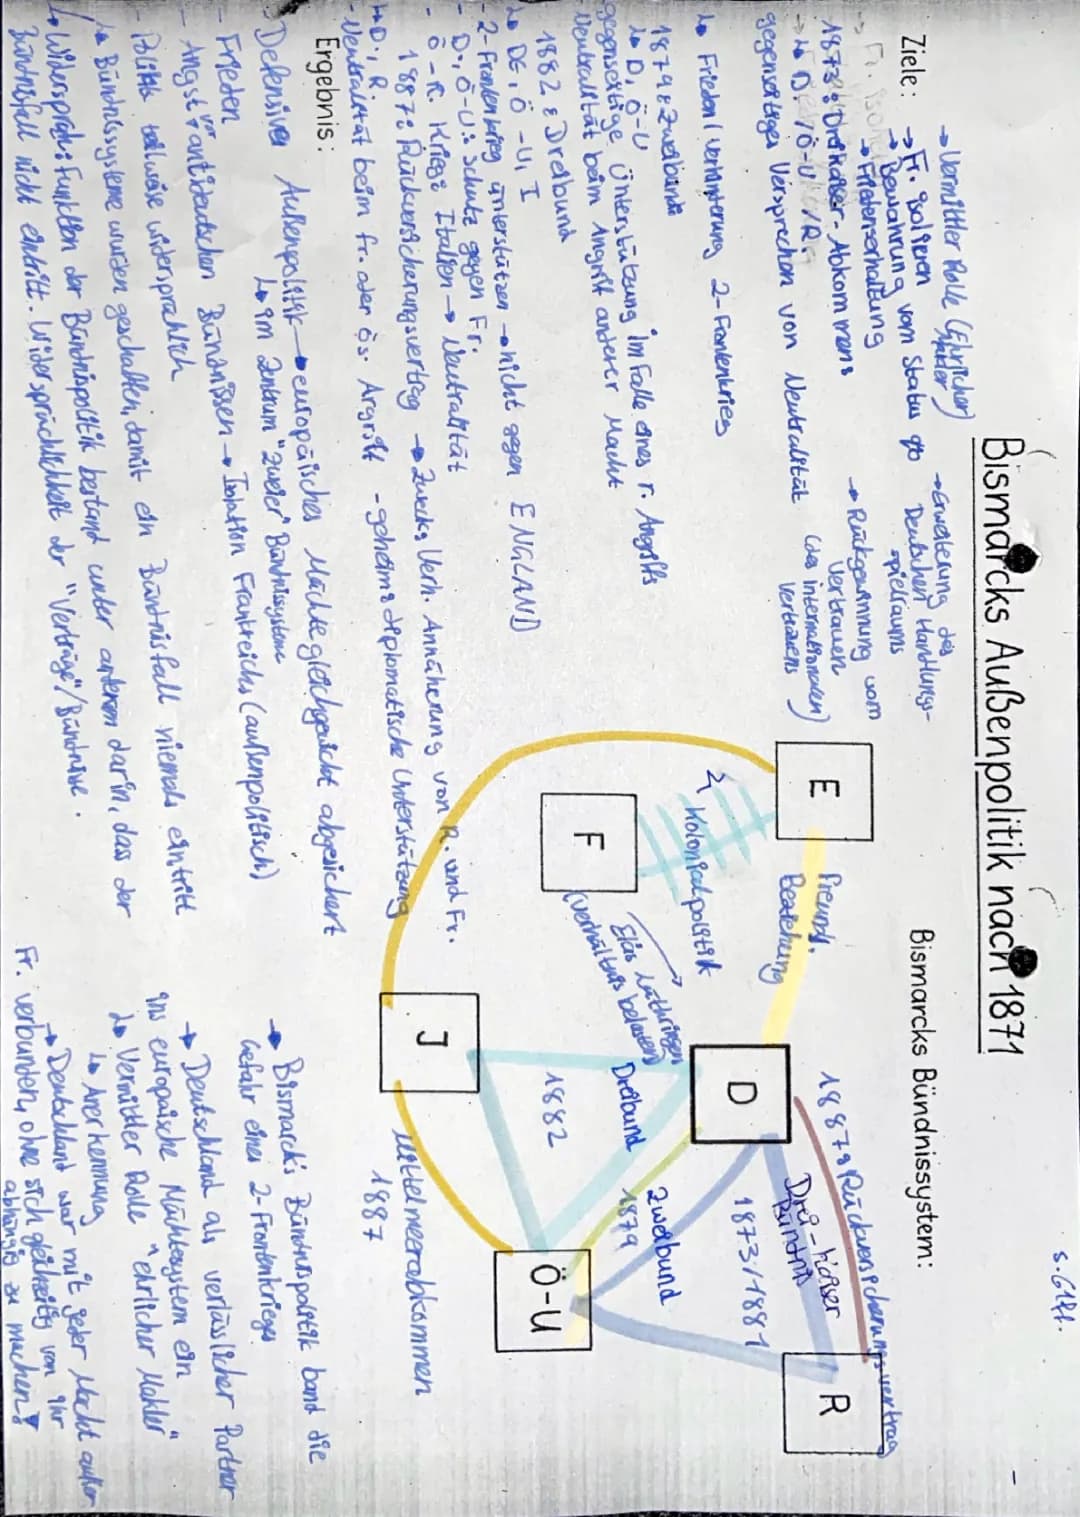 S. 61ff.
Bismarcks Außenpolitik nach 1871
Ziele:
→ Vermittler Rolle (Ehrlicher Makler)
→ Fr. Isolieren
→ Bewahrung vom Status quo
→ Friedenserhaltung
→ Erweiterung des
Deutschen Handlungs-
spielraums
→ Rückgewinnung vom
Vertrauen
(des internationalen)
Vertrauens
1873: Dreikaiser-Abkommens
↳ D. / Ö-U / R
gegenseitiges Versprechen von Neutralität
↳ Frieden / verminderung 2-Frontenkrieg
1879: Zweibund:
↳ D, Ö-U
gegenseitige Unterstützung im Falle eines r. Angriffs
-Neutralität beim Angriff anderer Macht
1882: Dreibund
↳ DE, Ö-U, I
-2-Frontenkrieg unterstützen → nicht gegen ENGLAND
- D, Ö-U: Schutz gegen Fr.
- Ö-R. Krieg: Italien → Neutralität
1887: Rückversicherungsvertrag → Zweck: Verh. Annäherung von R. und Fr.
↳ D, R.
-Neutralität beim fr. oder ös. Angriff - geheime diplomatische Unterstützung
Ergebnis:
Defensive Außenpolitik → europäisches Mächtegleichgewicht abgesichert
↳ im Zentrum "zweier" Bündnissysteme
- Frieden
- Angst vor antideutschen Bündnissen → Isolation Frankreichs (außenpolitisch)
- Politik teilweise widersprüchlich
↳ Bündnissysteme wurden geschaffen, damit ein Bündnisfall niemals eintritt
↳ Widerspruch: Funktion der Bündnispolitik bestand unter anderem darin, dass der
Bündnisfall nicht eintritt. Widersprüchlichkeit der "Verträge"/Bündnisse.
Bismarcks Bündnissystem:
E
Freundl.
Beziehung
Kolonialpolitik
F
Elsass Lothringen
(verhältnis belastend)
D
1887: Rückversicherungsvertrag
Drei-Kaiser
Bündnis
1873/1881
R
Zweibund
1879
Dreibund
1882
Ö-U
I
Mittelmeerabkommen
1887
→ Bismarcks Bündnispolitik band die
Gefahr eines 2-Frontenkriegs
→ Deutschland als verlässlicher Partner
ins europäische Mächtesystem ein
↳ Vermittler Rolle "ehrlicher Makler"
↳ Anerkennung
→ Deutschland war mit jeder Macht außer
Fr. verbunden, ohne sich gleichzeitig von ihr
abhängig zu machen!